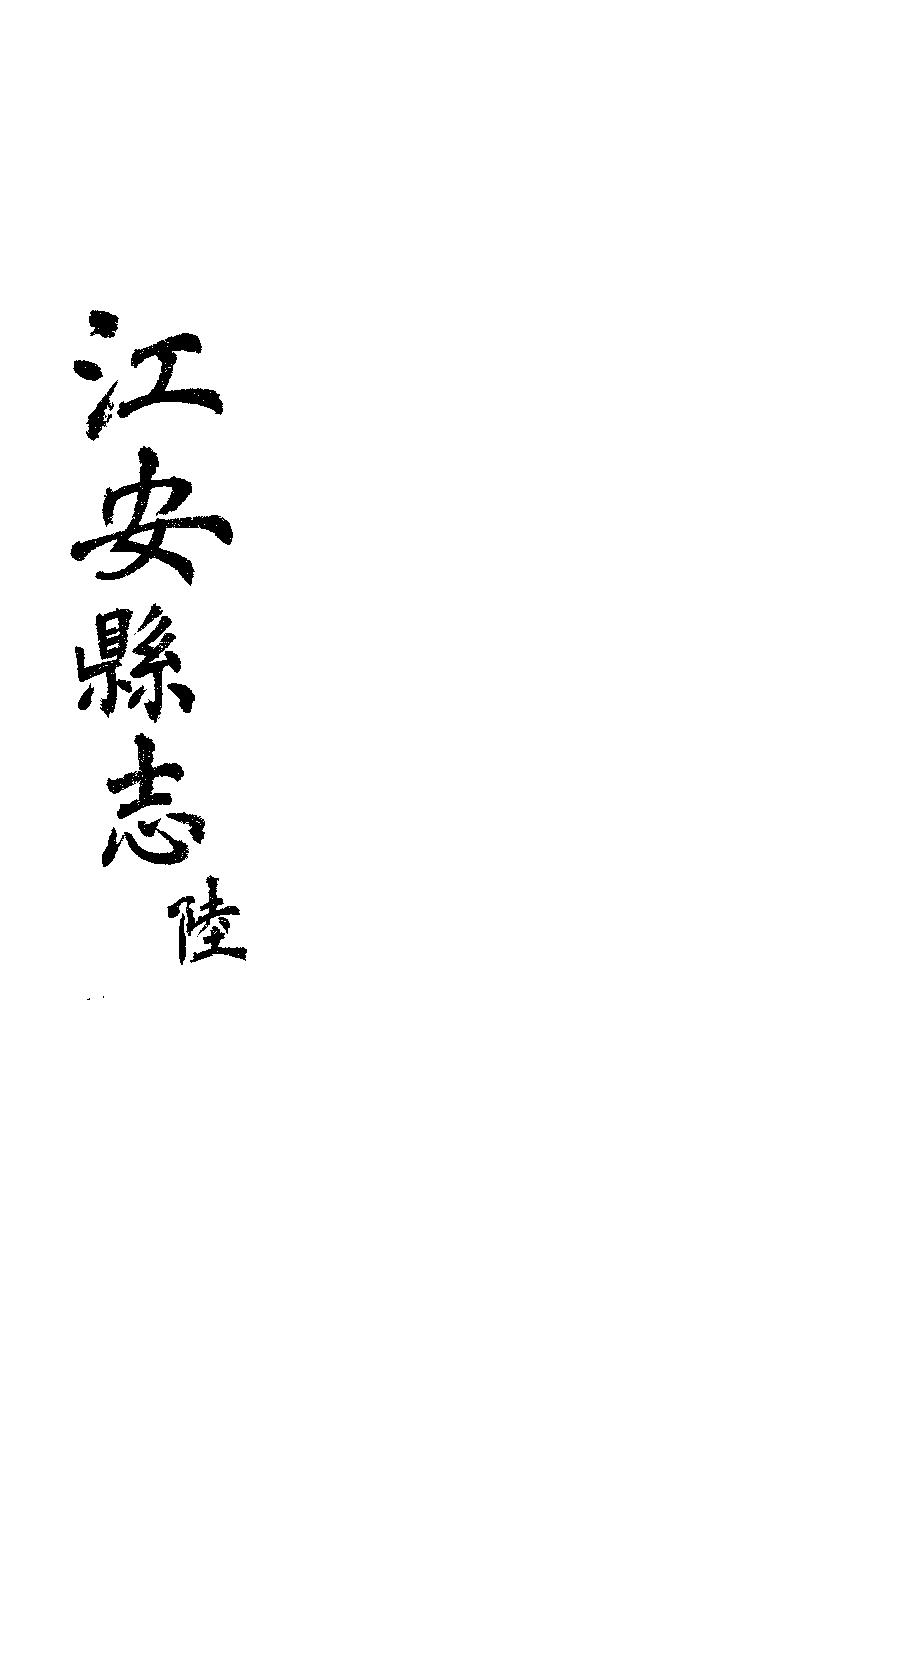 江安縣志
陸